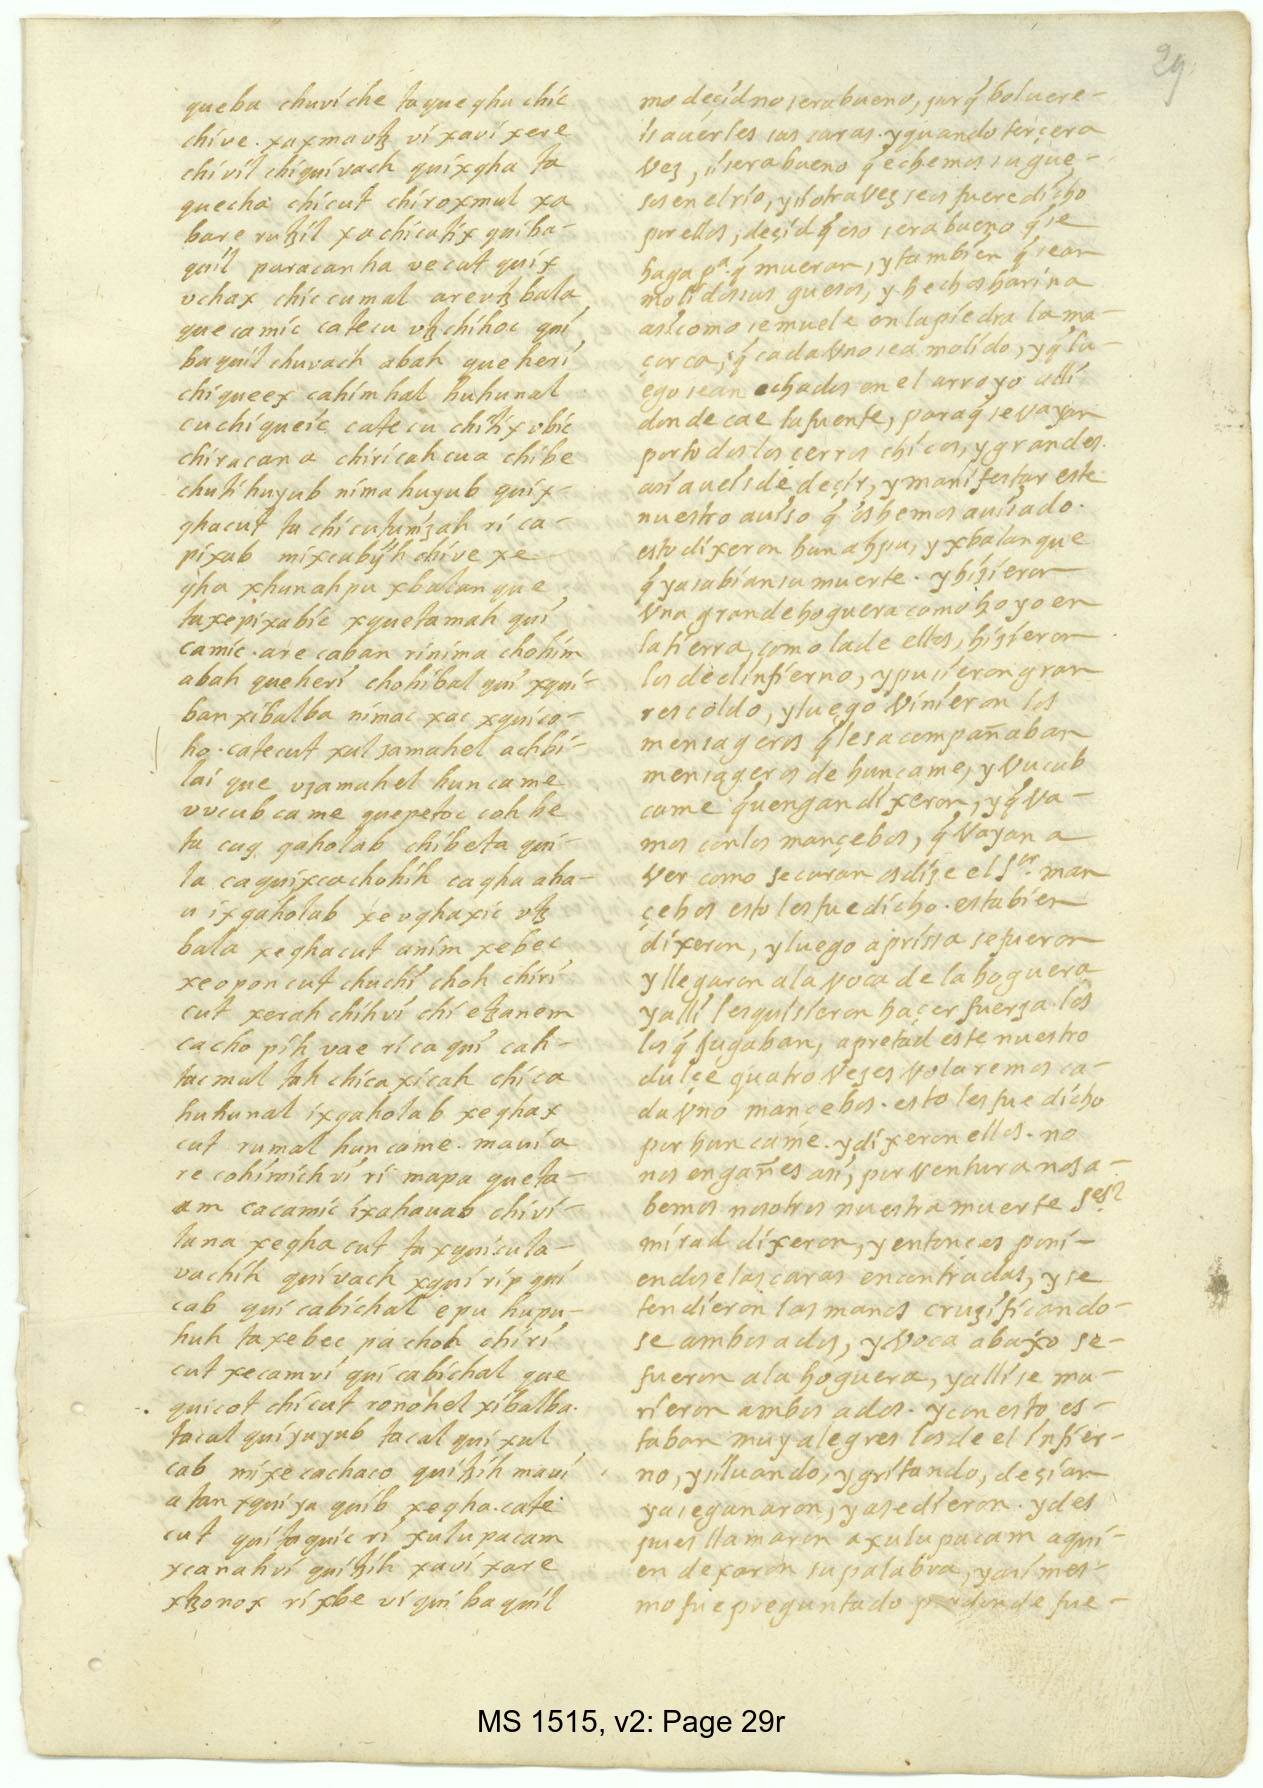 29
queba chuviche ta quegha chic
chive. xaxmautz vi xavi xere
chivil chiquivach quixgha ta
quecha chicut chiroxmul xa
bare rutzil xa chicatix quiba-
quil paracanha vecut quix
vchax chic cumal areutz bala
quecamic catecu utz chihoc qui
baquil chuvach abah queheri
chiqueex cahimhal huhunal
cuchiqueic catecu chitix ubic
chiracana chiricahcua chibe
chuti huyub nima huyub quix-
ghacut ta chicutunizah ri ca-
pixab mixcabijh chive xe
gha xhunahpu xbalanque
ta xepixabic xquetamah qui
camic. are caban rinima chohim
abah queheri chohibal qui xqui-
ban xibalba nimac xac xquico-
ho. catecut xul samahel achbi-
lai que uzamahel huncame
vvcub came quepetoc coh be
ta cuq qaholab chibeta qui-
la caquixcachohih cagha aha-
u ixqaholab xevghaxic utz
bala xeghacut anim xebec
xeopon cut chuchi choh chiri
cut xerah chihvi chi etzanem
cacho pih vae ri ca qui cah-
tacmul tah chicaxicah chica
huhunal ixqaholab xeghax
cut rumal huncame. mavi a
re cohimich vi ri mapa queta-
am cacamic ixahauab chivi-
lana xegha cut ta xquicula-
vachih quivach xqui rip qui
cab quicabichal epu hupu-
huh ta xebec pa choh chiri
cut xecamvi qui cabichal que
quicot chicut ronohel xibalba.
tacal quiyuyub tacal qui xul
cab mixecachaco quitzih mavi
atan xquiya quib xegha. cate
cut quitaquic ri xulu pacam
xcanahvi quitzih xavi xare
xtzonox ri xbe vi qui baquil
mo deçid no sera bueno, porq̃ boluere-
is a uerles sus caras. y quando terçera
vez, si sera bueno q̃ echemos su gue,-
sos en el rio, y si otra vez seos fuere dicho
por ellos, deçid q̃ eso sera bueno q̃ se
haga pª. q̃ mueran, y tambien q̃ sean
molidos sus guesos, y hechos harina
asi como se muele en la piedra la ma-
çorca, q̃ cada vno sea molido, y q̃ lu-
ego sean echados en el arroyo alli
donde cae la fuente, para q̃ se vayan
por todos los çerros chicos, y grandes.
asi aueis de deçir, y manifestar este
nuestro auiso q̃ os hemos auisado.
esto dixeron hun ahpu, y xbalanque
q̃ ya sabian su muerte. y hizieron
vna grande hoguera como hoyo en
la tierra, como la de ellos, hizieron
los de el infierno, y pusieron gran
rescoldo, y luego vinieron los
mensageros q̃ les acompañaban
mensageros de huncame, y vucub
came q̃ uengan dixeron, y q̃ va-
mos con los mançebos, q̃ vayan a
ver como se curan os dize el Sor. man
çebos esto les fue dicho. esta bien
dixeron, y luego aprissa se fueron
y llegaron a la voca de la hoguera
y alli les quisieron haçer fuerza los
los q̃ jugaban, apretad este nuestro
dulçe quatro vezes volaremos ca-
da vno mançebos. esto les fue dicho
por hun came. y dixeron ellos. no
nos engañes asi, por ventura no sa-
bemos nosotros nuestra muerte Ses?
mirad dixeron, y entonçes poni-
endose las caras encontradas, y se
tendieron las manos cruzificando-
se ambos a dos, y voca abaxo se-
fueron a la hoguera, y alli se mu-
rieron ambos a dos. y con esto es-
taban muy alegres los de el infier-
no, y siluando, y gritando, dezian
ya se ganaron, ya se dieron. y des
pues llamaron a xulu pacam a qui-
en dexaron su palabra, y asi mes-
mo fue preguntado por donde fue-
MS 1515, v2: Page 29r